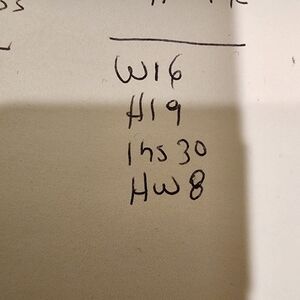 W16
H19
Ihs 30
HW8